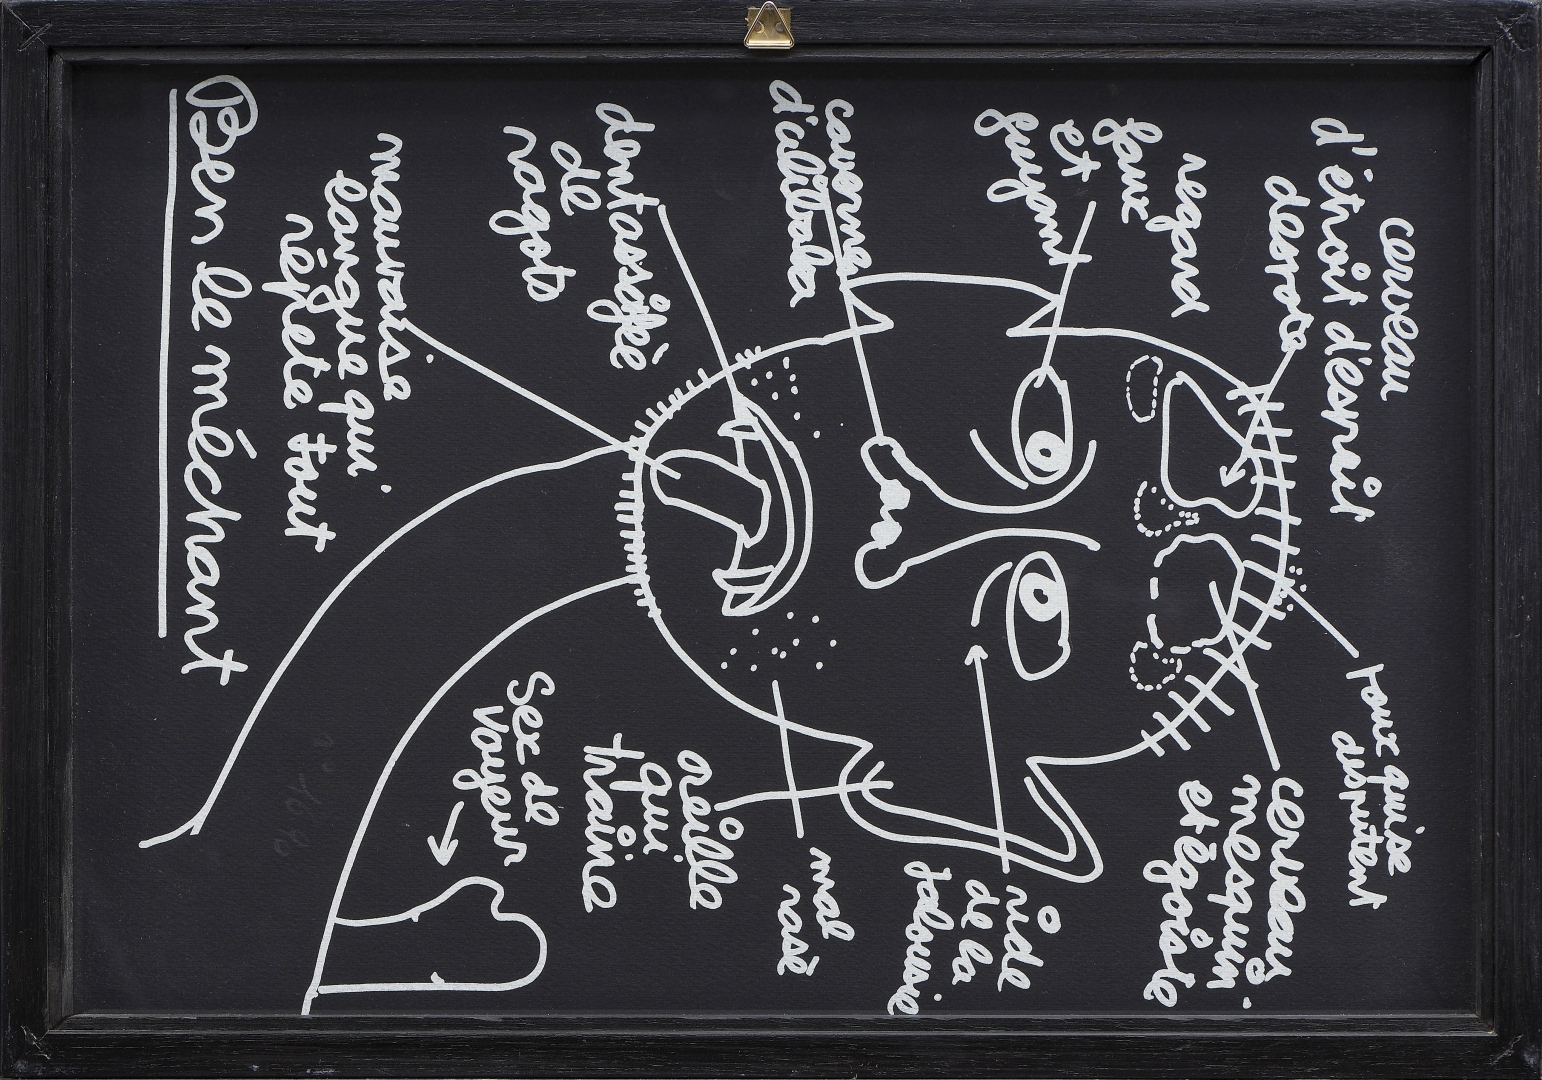 cerveau
d'étroit d'esprit
despote
roux qui se
disputent
cerveau
mesquin
et égoïste
regard
faux
et
fuyant
ride
de la
jalousie
caverne
d'alibaba
mal
rasé
oreille
qui
traine
de
ragots
mauvaise
langue qui
répète tout
sex de
voyeur
Ben le méchant